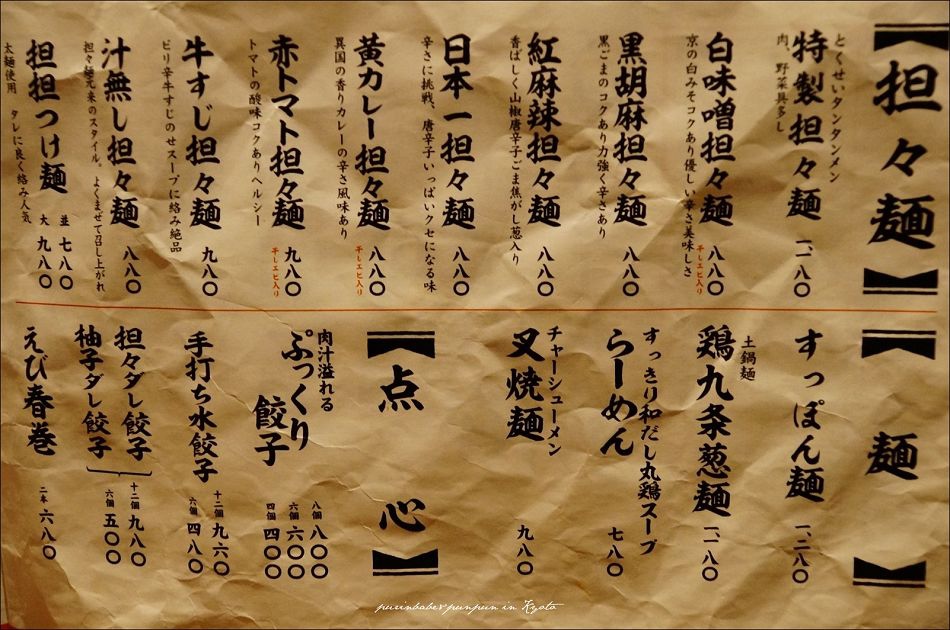 【担々麺】
とくせいタンタンメン
特製担々麺 一、一八〇
肉、野菜具多し
白味噌担々麺 八八〇
干しエビ入り
京の白みそコクあり優しい辛さ美味しさ
黒胡麻担々麺 八八〇
黒ごまのコクあり力強く辛さあり
紅麻辣担々麺 八八〇
香ばしく山椒唐辛子ごま焦がし葱入り
日本一担々麺 八八〇
辛さに挑戦、唐辛子いっぱいクセになる味
黄カレー担々麺 八八〇
干しエビ入り
異国の香りカレーの辛さ風味あり
赤トマト担々麺 九八〇
干しエビ入り
トマトの酸味コクありヘルシー
牛すじ担々麺 九八〇
ピリ辛牛すじのせスープに絡み絶品
汁無し担々麺 八八〇
担々麺元来のスタイル。よくまぜて召し上がれ
担担つけ麺 並 七八〇
大 九八〇
太麺使用 タレに良く絡み人気
【麺】
すっぽん麺 一、二八〇
土鍋麺
鶏九条葱麺 一、一八〇
すっきり和だし丸鶏スープ
らーめん 七八〇
チャーシューメン
叉焼麺 九八〇
【点心】
肉汁溢れる
ぷっくり餃子 八個 八〇〇
六個 六〇〇
四個 四〇〇
手打ち水餃子 十二個 九六〇
六個 四八〇
担々ダレ餃子
柚子ダレ餃子
十二個 九八〇
六個 五〇〇
えび春巻 二本 六八〇
pureinbabe&punpun in Kyoto